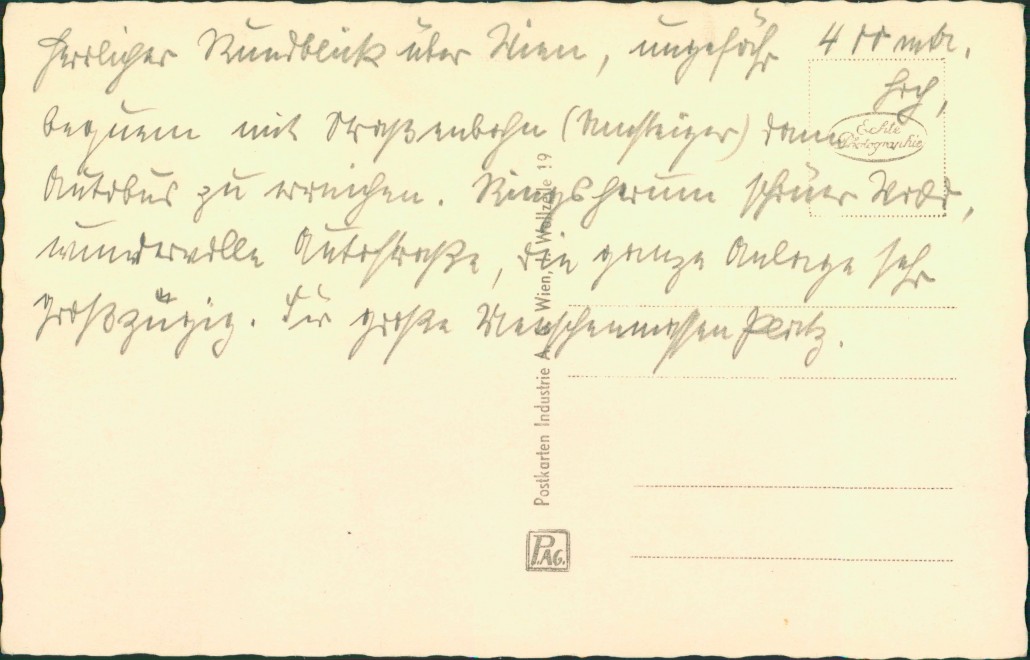 Herrlicher Rundblick über Wien, ungefähr 400 mtr.
hoch,
bequem mit Straßenbahn (Umsteiger) dann
Autobus zu erreichen. Ringsherum schöner Wald,
wundervolle Autostraße, die ganze Anlage sehr
großzügig. Für große Menschenmassen Platz.
Echte
Photographie
Postkarten Industrie A. G. Wien, I. Wollzeile 19
PAG.